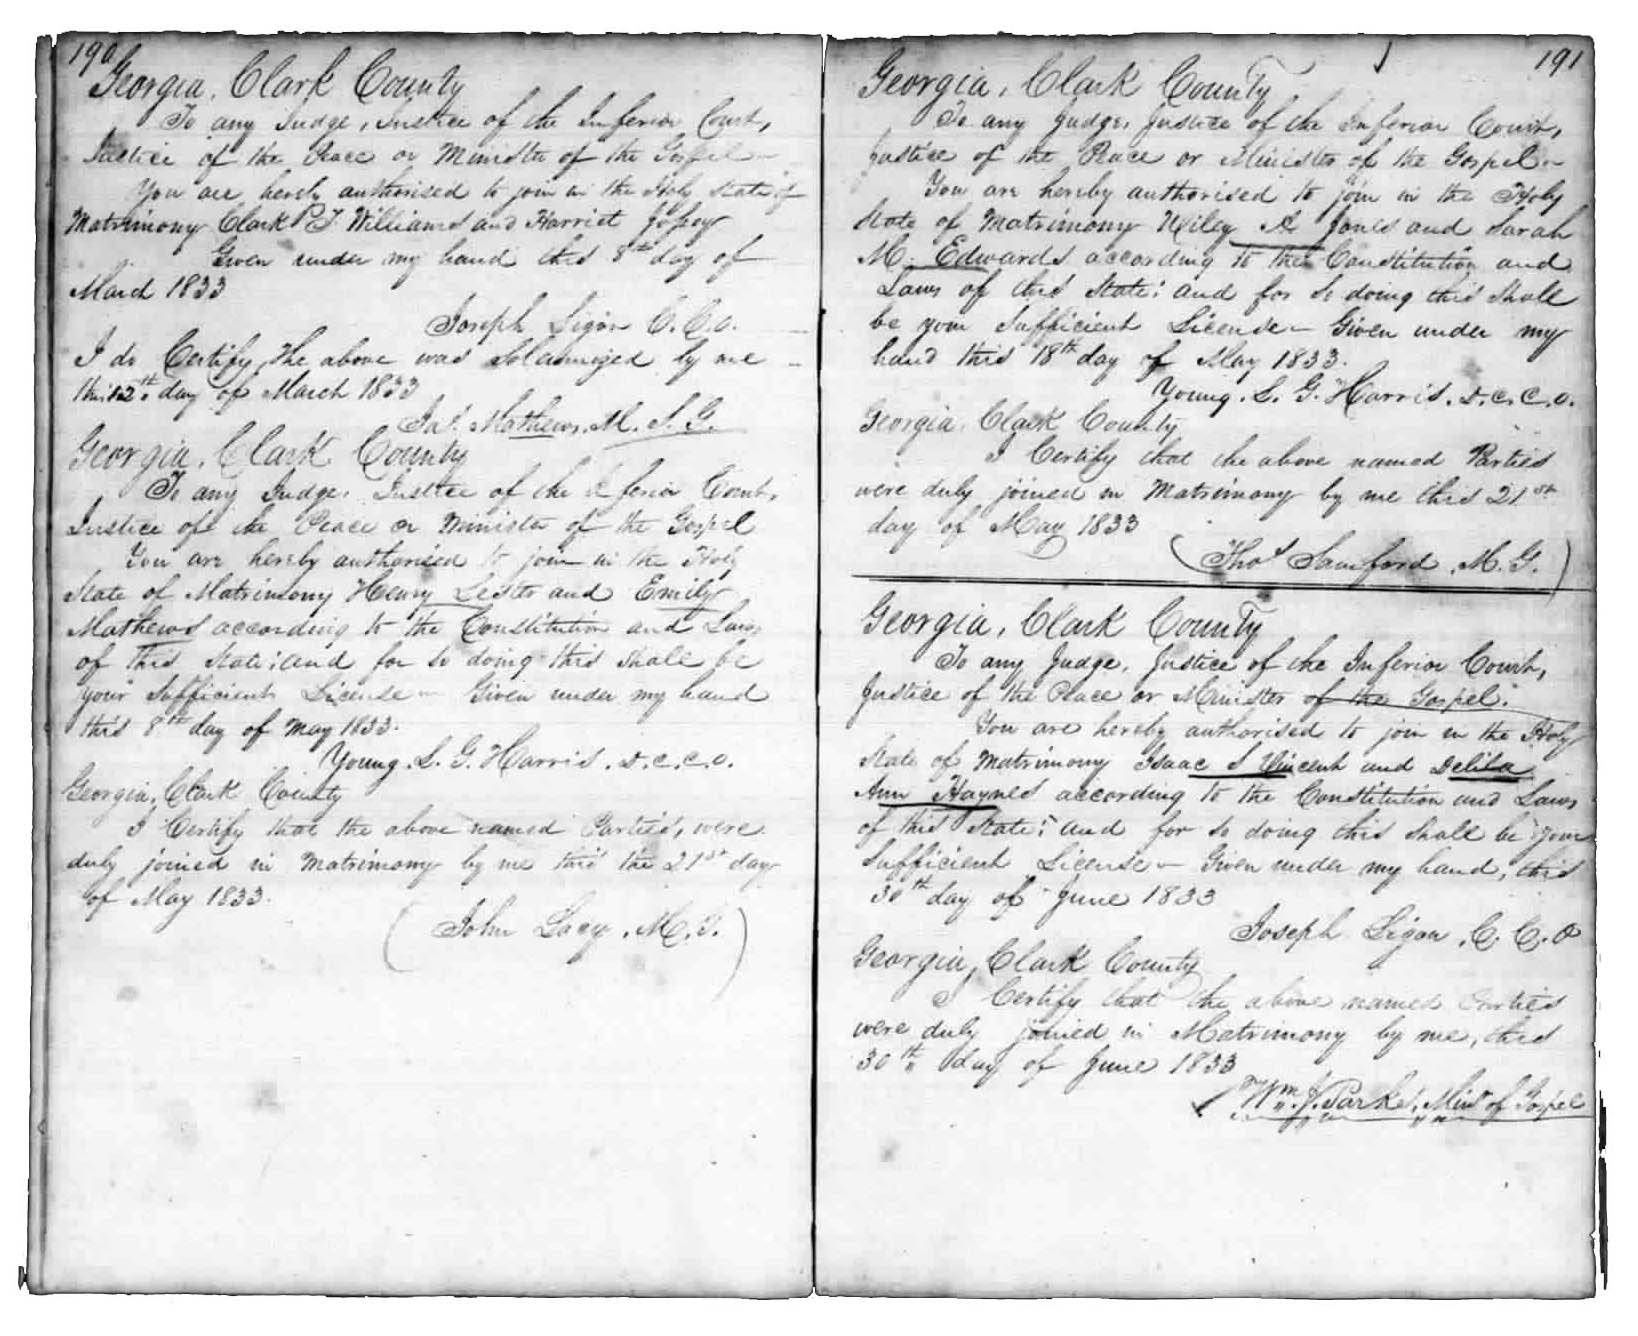 190
Georgia, Clark County
To any Judge, Justice of the Inferior Court,
Justice of the Peace or Minister of the Gospel –
You are hereby authorised to join in the Holy state of
Matrimony Clark P. T. Williams and Harriet
Given under my hand this 8th day of
March 1833
Joseph Ligon C. C. O.
I do Certify the above was Solemnized by me
this 12th day of March 1833
Jas. Mathews, M. G.
Georgia, Clark County
To any Judge, Justice of the Inferior Court,
Justice of the Peace or Minister of the Gospel
You are hereby authorised to join in the Holy
State of Matrimony Henry Lester and Emily
Mathews according to the Constitution and Laws
of this State: and for so doing this shall be
your Sufficient License – Given under my hand
this 8th day of May 1833.
Young. L. G. Harris. D. C. C. O.
Georgia, Clark County
I Certify that the above named Parties, were
duly joined in Matrimony by me this the 21st day
of May 1833.
(John Lacy. M. G.)
191
Georgia, Clark County
To any Judge, Justice of the Inferior Court,
Justice of the Peace or Minister of the Gospel –
You are hereby authorised to join in the Holy
State of Matrimony Wiley A Jones and Sarah
M. Edwards according to the Constitution and
Laws of this State: and for so doing this shall
be your Sufficient License – Given under my
hand this 18th day of May 1833.
Young. L. G. Harris. D. C. C. O.
Georgia, Clark County
I Certify that the above named Parties
were duly joined in Matrimony by me this 21st
day of May 1833
(Thos Samford. M. G.)
Georgia, Clark County
To any Judge, Justice of the Inferior Court,
Justice of the Peace or Minister of the Gospel.
You are hereby authorised to join in the Holy
State of Matrimony Isaac S Vincent and Delila
Ann Haynes according to the Constitution and Laws
of this State: and for so doing this shall be your
Sufficient License – Given under my hand, this
30th day of June 1833
Joseph Ligon, C. C. O
Georgia, Clark County
I Certify that the above named Parties
were duly joined in Matrimony by me, this
30th day of June 1833
Wm. J. Parks, Minr of Gospel